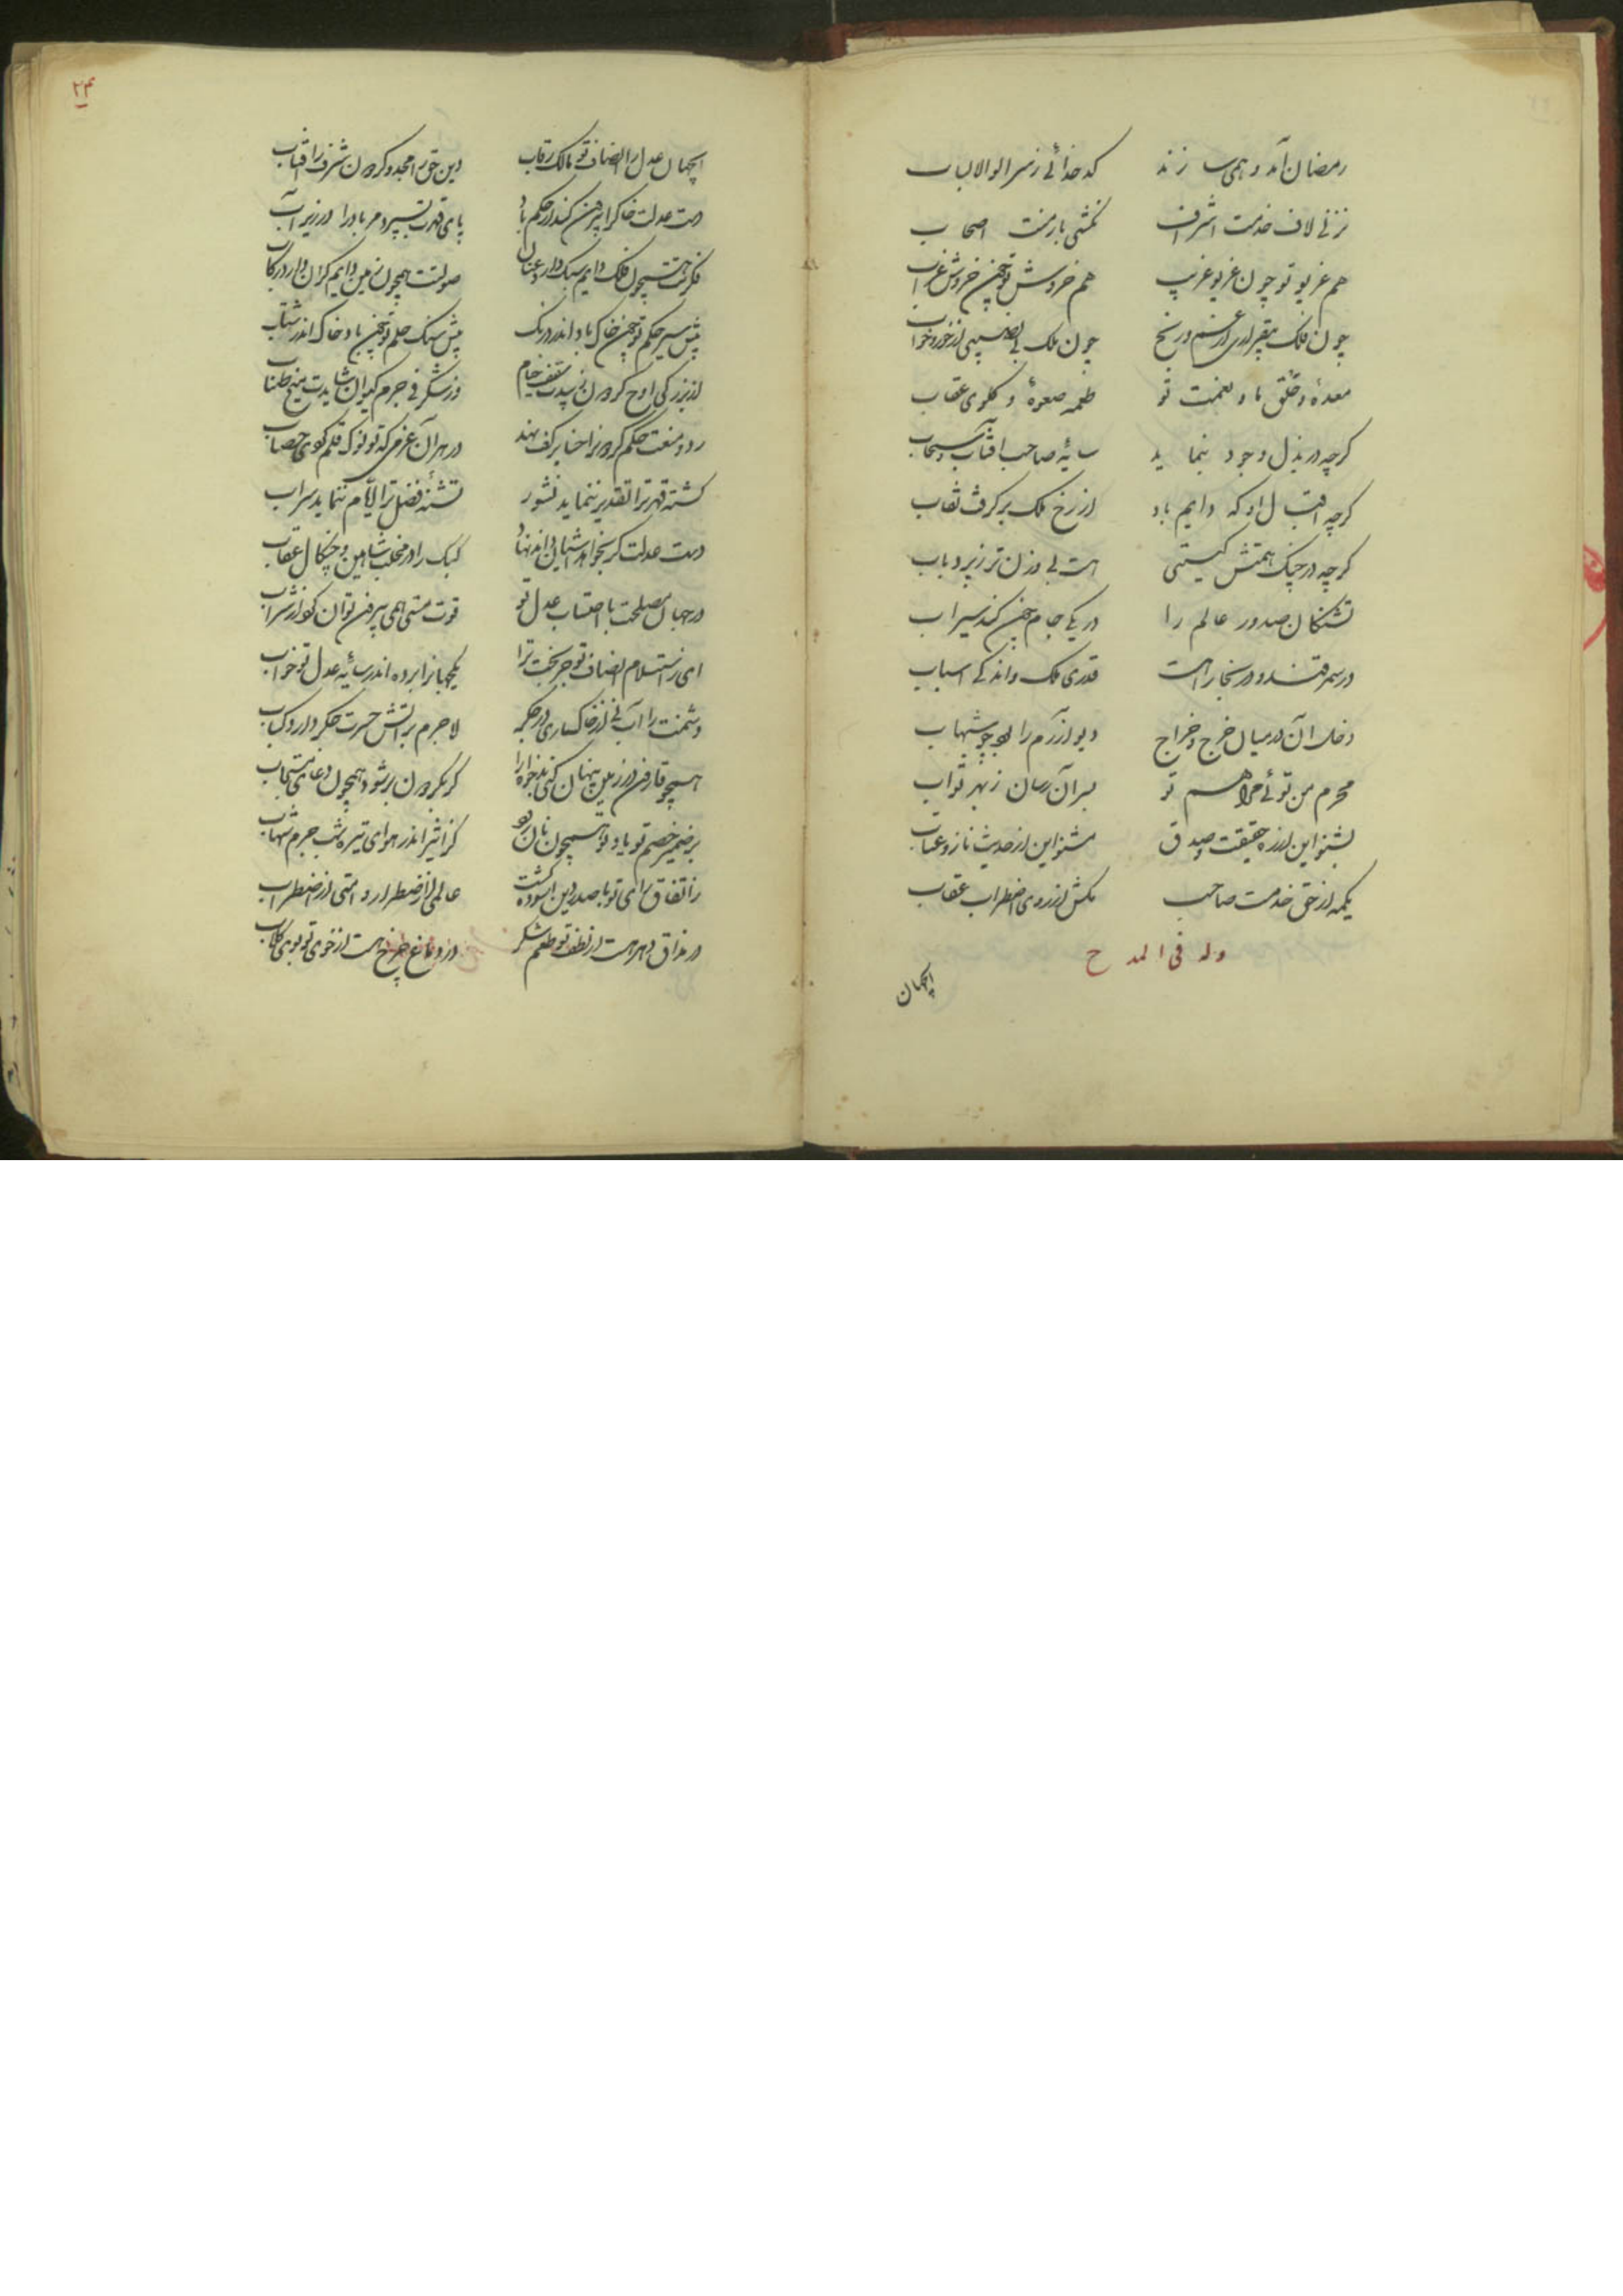 رمضان آمد و همی سازند کدخدائی ز سر اولوالالباب
نزنی لاف خدمت اشراف نکشی بار منت اصحاب
هم غریو تو چون غریو غریب هم خروش تو چون خروش غراب
چون فلک بیقراری از غم و رنج چون ملک بی نصیبی از خور و خواب
معده و حلق باد و نعمت تو طعمه صعوه و گلوی عقاب
کرچه در بذل و جود بنماید سایه صاحب آفتاب و سحاب
کرچه اقبال او که دایم باد از رخ ملک برگرفت نقاب
کرچه در چنک همتش کیتی است بی وزن تر ز پر ذباب
تشنکان صدور عالم را در یکی جام چون کند سیراب
در سمرقند و در بخارا هست قدری ملک و اندکی اسباب
دخل آن در میان خرج و خراج دیو آزرم را چو شهاب
محرم من توئی مرا هم تو بسر آن رسان ز بهر ثواب
بشنو این از ره حقیقت و صدق مشنو این از حدیث ناز و عتاب
یکمه از حق خدمت صاحب مکش از روی اضطراب عقاب
وله فی المدح
ایجهان
۲۳
ایجهان عدل را انصاف تو مالک رقاب دین حق را مجد و کردون شرف را آفتاب
دست عدلت خاک را بیرون کند از حکم باد پای قهرت بسپرد مر باد را در زیر آب
فکرتت همچون فلک دایم سبک دارد عنان صولتت همچون زمین دایم کران دارد رکاب
پیش سیر حکم تو چون خاک باد اندر درنک پیش سنک حلم تو چون باد خاک اندر شتاب
از بزرکی اوج کردون زیبدت سقف خیام وز شکرفی جرم کیوان شایدت میخ طناب
رد و منعت حکم کردون را حنا بر کف نهد در هر آن عزمی که تو نوک قلم کردی خضاب
کشته قهر ترا تقدیر ننماید نشور تشنه فضل ترا ایام ننماید سراب
دست عدلت کر بخواهد آشیان داند نهاد کبک را در مخلب شاهین و چنکال عقاب
در جهان مصلحت با احتساب عدل تو قوت مستی همی بیرون توان کرد از شراب
ای ز استسلام انصاف تو جز بخت ترا یکجهان را برده اندر سایه عدل تو خواب
دشمنت را آب نی از خاکساری در جکر لاجرم بر آتش حسرت جکر دارد کباب
همچو قارون در زمین پنهان کنی بدخواه را کر بکردون بر شود همچون دعای مستجاب
بر ضمیر خصم تو یاد تو همچون نان بود کز اثیر اندر هوای تیره شب جرم شهاب
ز اتفاق رای تو با صدر دین آسوده کشت عالمی از اضطرار و امتی از اضطراب
در مذاق دهر هست از لطف تو طعم شکر در دماغ چرخ هست از خوی تو بوی کلاب